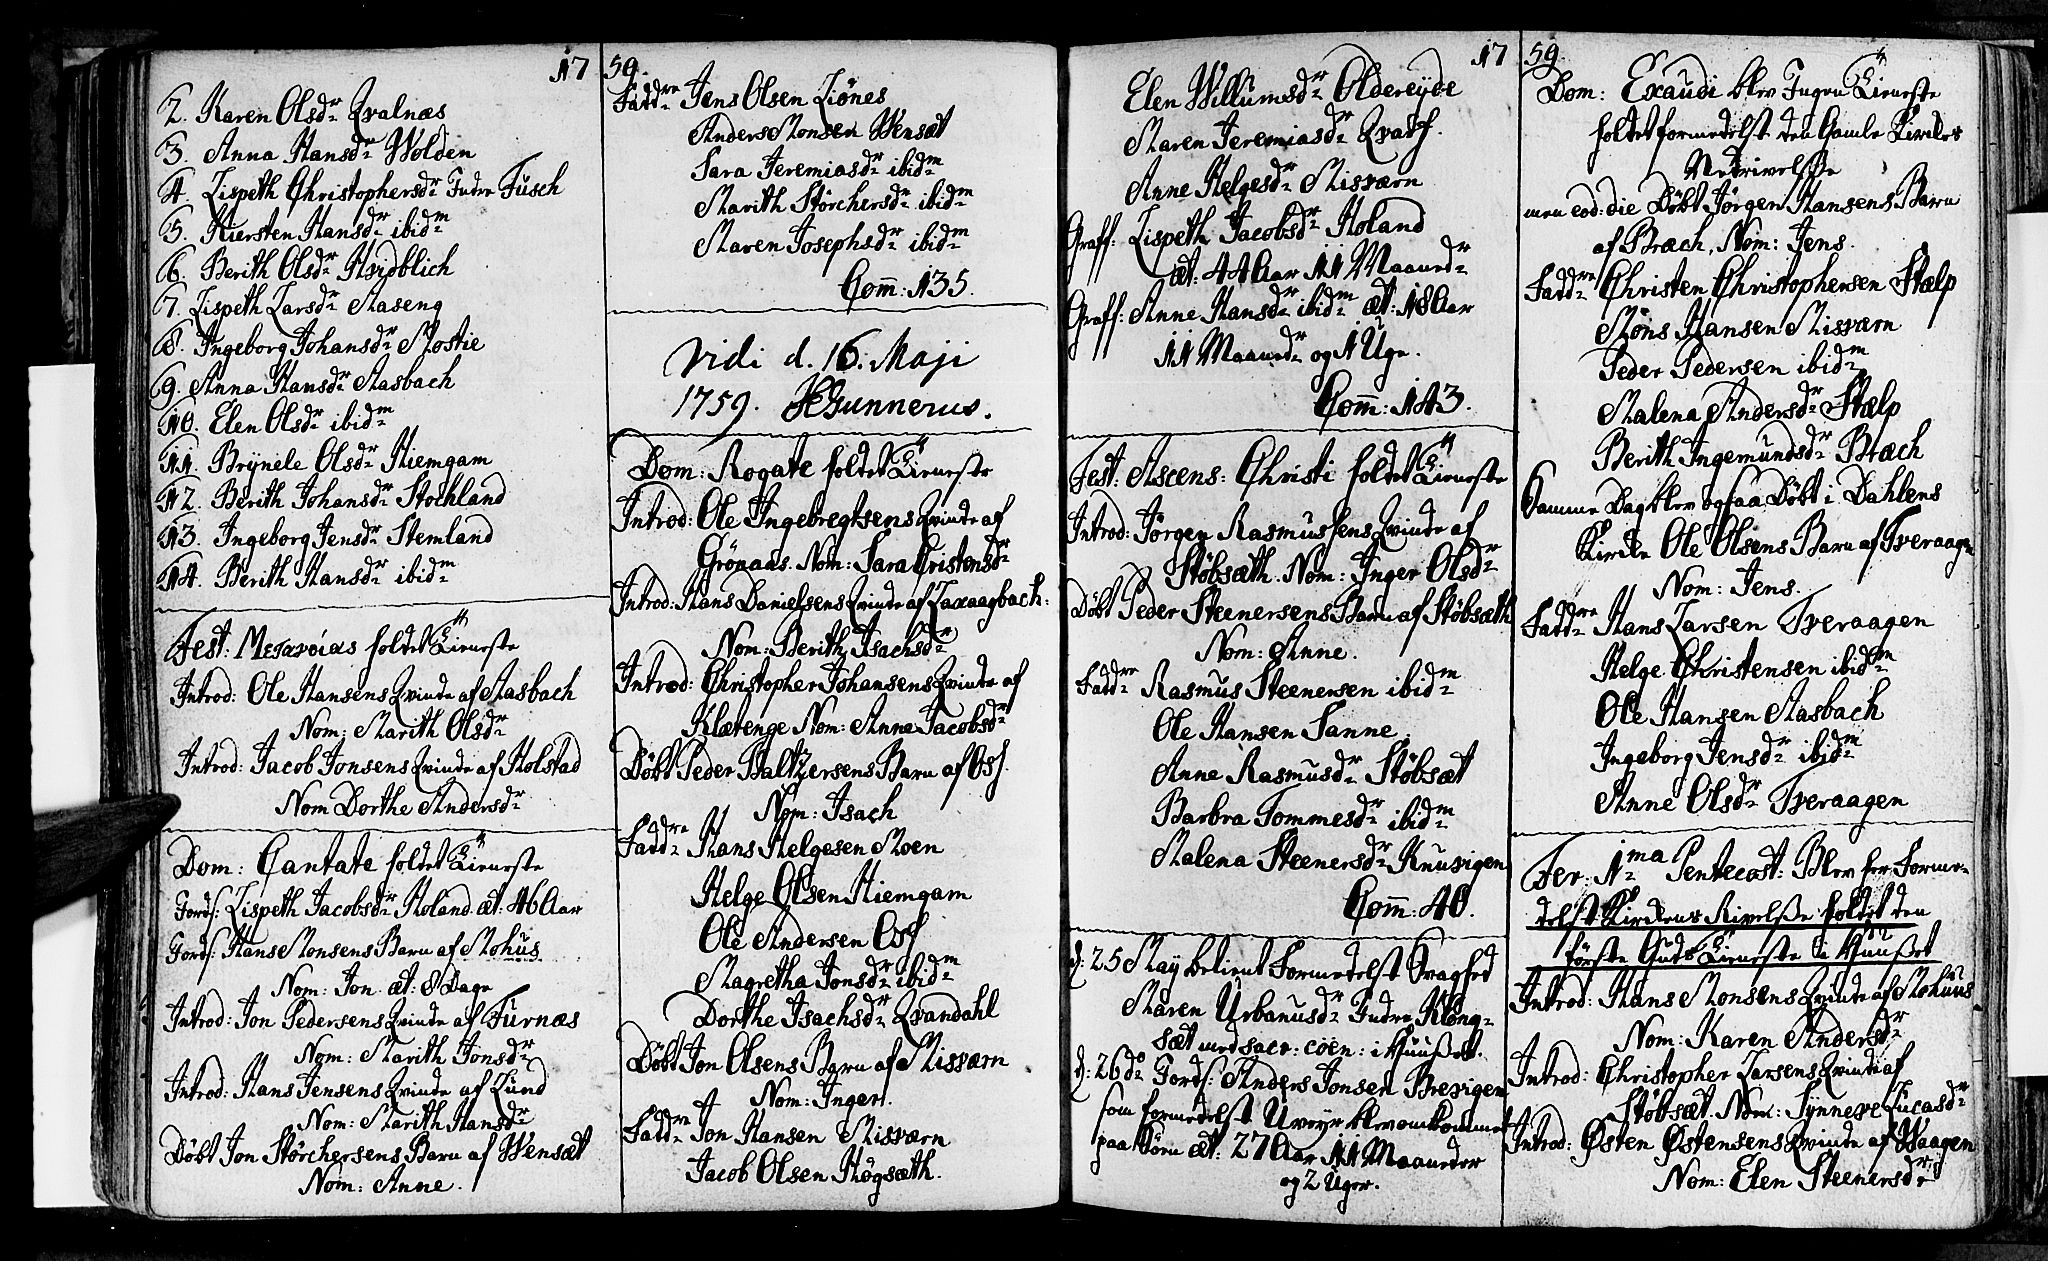 17 59.
2. Karen Olsdr Qvalnæs
3. Anna Hansdr Wolden
4. Lispeth Christophersdr Indre Fusch
5. Kiersten Hansdr ibidm
6. Berith Olsdr Hvidblich
7. Lispeth Larsdr Aaseng
8. Ingeborg Johansdr Mostie
9. Anna Hansdr Aasbach
10. Elen Olsdr ibidm
11. Brynele Olsdr Hiemgam
12. Berith Johansdr Stochland
13. Ingeborg Jensdr Stemland
14. Berith Hansdr ibidm
Fest: Μετανοίας holdet Tieneste
Introd: Ole Hansens Qvinde af Aasbach
Nom: Marith Olsdr
Introd: Jacob Jonsens Qvinde af Holstad
Nom Dorthe Andersdr
Dom: Cantate holdet Tieneste
Jords: Lispeth Jacobsdr Holand æt: 46 Aar
Jords: Hans Monsens Barn af Mohus
Nom: Jon æt: 8 Dage
Introd: Jon Pedersens Qvinde af Furnæs
Nom: Marith Jonsdr
Introd: Hans Jensens Qvinde af Lund
Nom: Marith Hansdr
Döbt Jon Störchersens Barn af Wensæt
Nom: Anne.
Faddre Jens Olsen Liönes
Anders Monsen Wensæt
Sara Jeremiasdr ibidm
Marith Störchersdr ibidm
Maren Josephsdr ibidm
Com: 135.
Vidi d. 16. Maji
1759. JEGunnerus.
Dom: Rogate holdet Tieneste
Introd: Ole Ingebregtsens Qvinde af
Grönaas. Nom: Sara Cristensdr
Introd: Hans Danielsens Qvinde af Laxaagbach:
Nom: Berith Isachsdr
Introd: Christopher Johansens Qvinde af
Klætenge Nom: Anne Jacobsdr
Döbt Peder Baltzersens Barn af Osf.
Nom: Isach
Faddre Hans Helgesen Moen
Helge Olsen Hiemgam
Ole Andersen Osf
Magretha Jonsdr ibidm
Dorthe Isachsdr Qvandahl
Döbt Jon Olsens Barn af Misværn
Nom: Inger.
Faddre Jon Hansen Misværn
Jacob Olsen Högsæth.
17 59
Elen Willumsdr Oldereyde
Maren Jeremiasdr Qvarf.
Anne Helgesdr Misværn
Graff: Lispeth Jacobsdr Holand
æt: 44 Aar 11 Maanedr
Graff: Anne Hansdr ibidm æt: 18 Aar
11 Maanedr og 1 Uge.
Com: 143.
Fest: Ascens: Christi holdet Tieneste
Introd: Jörgen Rasmussens Qvinde af
Stöbsæth. Nom: Inger Olsdr
Döbt Peder Steenersens Barn af Stöbsæth
Nom: Anne.
Faddre Rasmus Steenersen ibidm
Ole Hansen Sanne
Anne Rasmusdr Stöbsæt
Barbra Tommesdr ibidm
Malena Steenersdr Knusvigen
Com: 40.
d: 25 May betient formedelst Svaghed
Maren Urbanusdr Indre Klöng-
sæt med sacr: coen: i Huuset.
d: 26 do Jords: Anders Jonsen Brevigen
som formedelst Uveyr blev omkommet
paa Söen æt: 27 Aar 11 Maaneder
og 2 Uger.
Dom: Exaudi blev Ingen Tieneste
holdet formedelst den Gamle Kirckes
Nedrivelse
men eod: die Döbt Jörgen Hansens Barn
af Bræch, Nom: Jens.
Faddre Christen Christophersen Skelp
Möns Hansen Misværn
Peder Pedersen ibidm
Malena Andersdr Skelp
Berith Ingemundsdr Bræch
Samme Dag blev ogsaa Döbt i Dahlens
Kircke Ole Olsens Barn af Tveraagen
Nom: Jens.
Faddre Hans Larsen Tveraagen
Helge Christensen ibidm
Ole Hansen Aasbach
Ingeborg Jensdr ibidm
Anne Olsdr Tveraagen
Fer: 1ma Pentecost: Blev her Forme-
delst Kirckens Rivelse holdet den
förste Guds Tieneste i Huuset
Introd: Hans Monsens Qvinde af Mohuus
Nom: Karen Andersdr
Introd: Christopher Larsens Qvinde af
Stöbsæt. Nom: Synneve Lucasdr
Introd: Östen Östensens Qvinde af Waagen
Nom: Elen Steenersdr